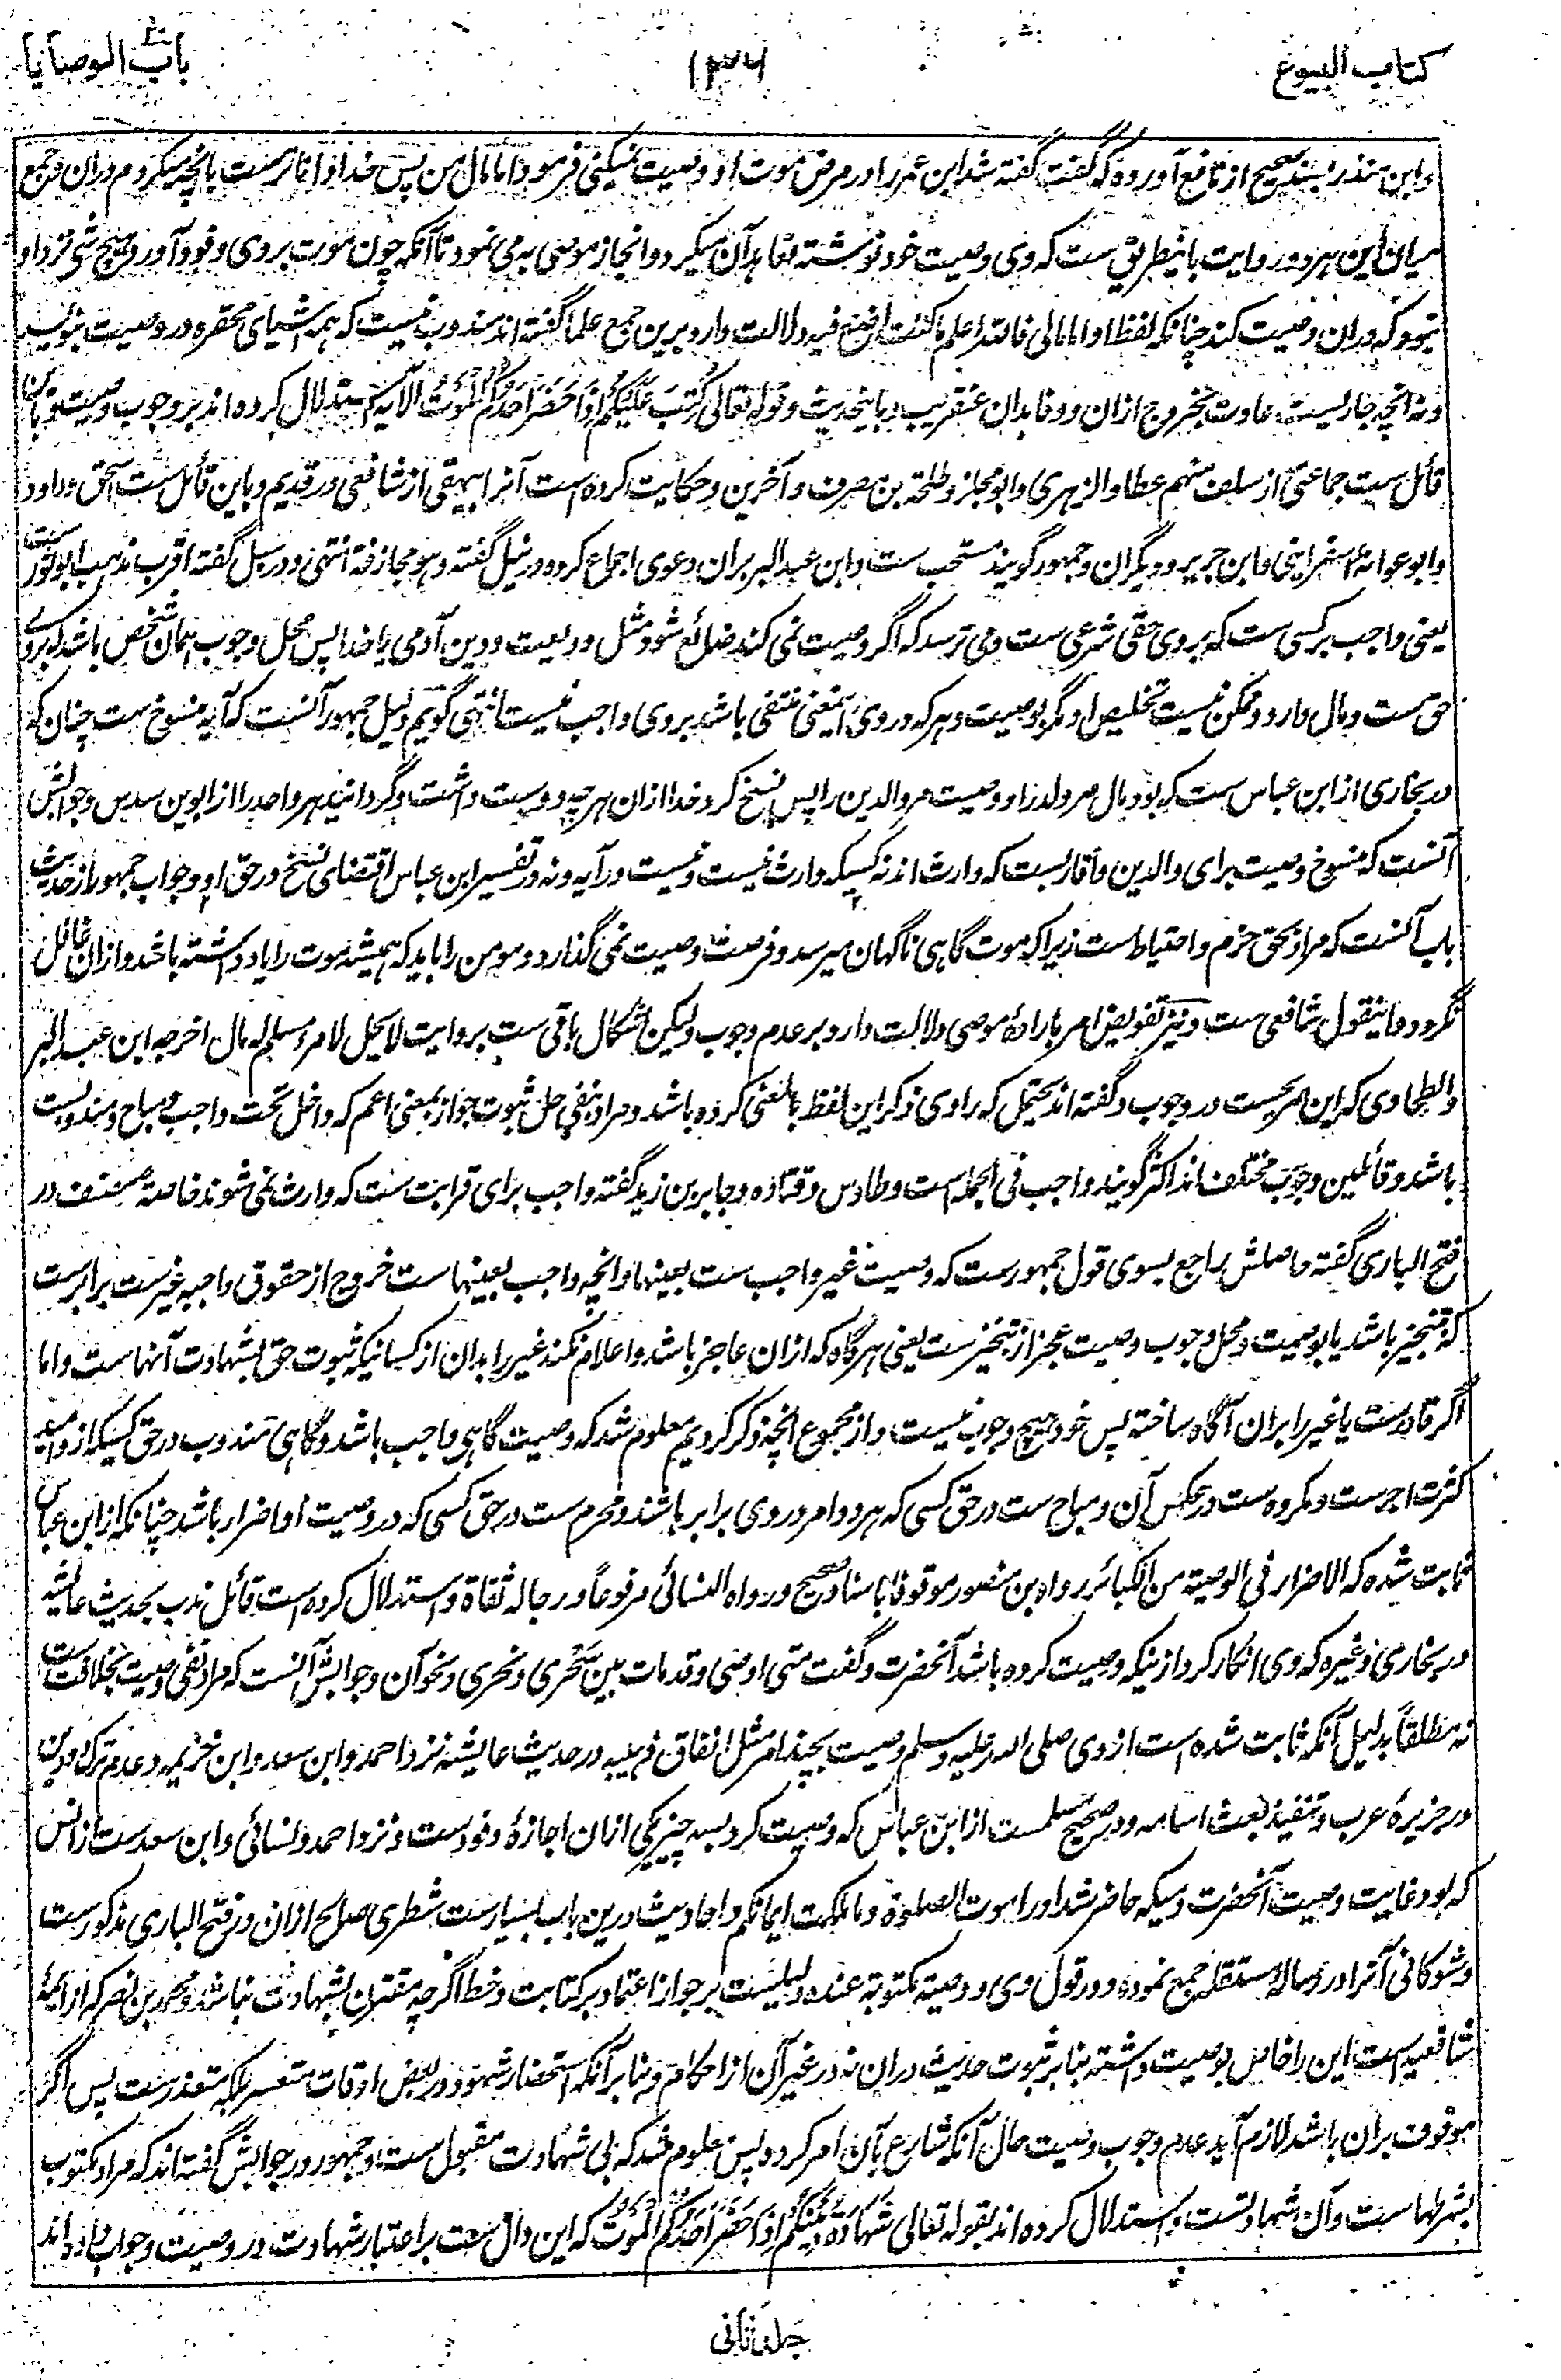 کتاب البیوع
۱۳۶
باب الوصایا
وابن منذر بسند صحیح از نافع آورده که گفت گفته شد ابن عمر را در مرض موت او وصیت نمیکنی فرمود اما مال من پس خدا داناترست بانچه میکردم دران و جمع
میان این هر دو روایت باینطریق ست که وی وصیت خود نوشته تعاهد آن میکرد و انجاز موصی به می نمود تا آنکه چون موت بروی وفود آورد هیچ شی نزد او
نبود که دران وصیت کند چنانکه لفظ او اما مالی فالله اعلم ما کنت اصنع فیه دلالت دارد برین جمع علما گفته اند مندوب نیست که همه اشیای محقره در وصیت بنویسد
و نه انچه جاریست عادت بخروج ازان و وفا بدان عنقریب و باینحدیث و قوله تعالی کُتِبَ عَلَیْکُمْ إِذَا حَضَرَ أَحَدَکُمُ الْمَوْتُ الآیه استدلال کرده اند بر وجوب وصیت و باین
قائل ست جماعتی از سلف منهم عطا والزهری وابو مجلز وطلحة بن مصرف وآخرین وحکایت کرده است آنرا بیهقی از شافعی در قدیم وباین قائل ست اسحق وداود
وابوعوانهٔ اسفراینی وابن جریر ودیگران وجمهور گویند مستحب ست وابن عبدالبر بران دعوی اجماع کرده در نیل گفته وهو مجازفة انتهی ودر سبل گفته اقرب مذهب ابوثور ست
یعنی واجب بر کسی ست که بروی حقی شرعی ست ومی ترسد که اگر وصیت نمی کند ضائع شود مثل ودیعت ودین آدمی یا خدا پس محل وجوب همان شخص باشد که بروی
حق ست ومال دارد وممکن نیست تخلیص او مگر بوصیت وهر که در وی اینمعنی منتفی باشد بروی واجب نیست انتهی گویم دلیل جمهور آنست که آیه منسوخ ست چنان که
در بخاری از ابن عباس ست که بود مال مر ولد را ووصیت مر والدین را پس نسخ کرد خدا ازان هرچه دوست داشت وگردانید هر واحد را از ابوین سدس وجوابش
آنست که منسوخ وصیت برای والدین واقاربست که وارث اند نه کسیکه وارث نیست ونیست در آیه ونه در تفسیر ابن عباس اقتضای نسخ در حق او وجواب جمهور از حدیث
باب آنست که مراد بحق حزم واحتیاط ست زیرا که موت گاهی ناگهان میرسد وفرصت وصیت نمی گذارد ومومن را باید که همیشه موت را یاد داشته باشد وازان غافل
نگردد واینقول شافعی ست ونیز تفویض امر بارادهٔ موصی دلالت دارد بر عدم وجوب ولیکن اشکال باقی ست بروایت لایحل لامرء مسلم له مال اخرجه ابن عبدالبر
والطحاوی که این صریحست در وجوب وگفته اند یحتمل که راوی ذکر این لفظ بالمعنی کرده باشد ومراد بنفی حل ثبوت جواز بمعنی اعم که داخل تحت واجب ومباح ومندوبست
باشد وقائلین وجوب مختلف اند اکثر گویند واجب فی الجمله است وطاوس وقتاده وجابر بن زید گفته واجب برای قرابت ست که وارث نمی شوند خاصة مصنف در
فتح الباری گفته حاصلش راجع بسوی قول جمهورست که وصیت غیر واجب ست بعینها وانچه واجب بعینهاست خروج از حقوق واجبه غیرست برابرست
که تنجیز باشد یا بوصیت ومحل وجوب وصیت عجز از تنجیزست یعنی هرگاه که ازان عاجز باشد واعلام نکند غیر را بدان از کسانیکه ثبوت حق بشهادت آنهاست واما
اگر قادرست یا غیر را بران آگاه ساخته پس خود هیچ وجوب نیست واز مجموع انچه ذکر کردیم معلوم شد که وصیت گاهی واجب باشد وگاهی مندوب در حق کسیکه از وامید
کثرت اجرست ومکروه ست در عکس آن ومباح ست در حق کسی که هر دو امر در وی برابر باشند ومحرم ست در حق کسی که در وصیت او اضرار باشد چنانکه از ابن عباس
ثابت شده که الاضرار فی الوصیة من الکبائر رواه بن منصور موقوفا باسناد صحیح ورواه النسائی مرفوعاً ورجاله ثقاة واستدلال کرده است قائل ندب بحدیث عائشه
در بخاری وغیره که وی انکار کرد ازینکه وصیت کرده باشد آنحضرت وگفت متی اوصی وقد مات بین سحری ونحری ونحو آن وجوابش آنست که مراد نفی وصیت بخلافت ست
نه مطلقاً بدلیل آنکه ثابت شده است از وی صلی الله علیه وسلم وصیت بچند امر مثل انفاق ذهیبه در حدیث عایشه نزد احمد وابن سعد وابن خزیمه وعدم ترک دو دین
در جزیرهٔ عرب وتنفیذ بعث اسامه ودر صحیح مسلمست از ابن عباس که وصیت کرد بسه چیز یکی ازان اجازهٔ وفودست ونزد احمد ونسائی وابن سعدست از انس
که بود غایت وصیت آنحضرت وسیکه حاضر شد او را موت الصلوة وما ملکت ایمانکم واحادیث درین باب بسیارست شطری صالح ازان در فتح الباری مذکورست
وشوکانی آنرا در رسالهٔ مستقله جمع نموده ودر قول وی ووصیته مکتوبة عنده دلیلیست بر جواز اعتماد بر کتابت وخط اگرچه مقترن بشهادت نباشد ومحمد بن نصر که از ایمهٔ
شافعیه است این را خاص بوصیت داشته بنابر ثبوت حدیث دران نه در غیر آن از احکام وبنا برآنکه استحضار شهود در بعض اوقات متعسر بلکه متعذرست پس اگر
موقوف بران باشد لازم آید عدم وجوب وصیت حال آنکه شارع بآن امر کرده پس معلوم شد که بی شهادت مقبول ست وجمهور در جوابش گفته اند که مراد مکتوب
بشرطهاست وآن شهادتست واستدلال کرده اند بقوله تعالی شَهَادَةُ بَیْنِکُمْ إِذَا حَضَرَ أَحَدَکُمُ الْمَوْتُ که این دال ست بر اعتبار شهادت در وصیت وجواب داده اند
جلد ثانی